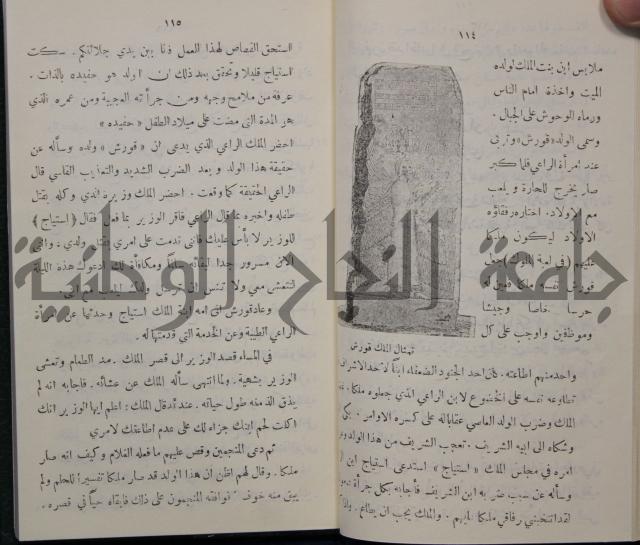 ١١٤
ملابس ابن بنت الملك لولده
الميت واخذة امام الناس
ورماه للوحوش على الجبال .
وسمى الولد «قورش» وتربى
عند امرأة الراعي فلما كبر
صار يخرج للحارة ويلعب
مع الاولاد ، اختاره رفقاؤه
الاولاد ليكون ملكا
عليهم (في لعبة الملوك) جعل
قورش نفسه ملكا فعين له
حرسا . خاصا وجيشا
وموظفين واوجب على كل
تمثال الملك قورش
واحد منهم اطاعته . كان احد الجنود الضعفاء ابنًا لاحد الاشراف
تطاوعه نفسه على الخضوع لابن الراعي الذي جعلوه ملكا .
الملك وضرب الولد العاصي عقابا له على كسره الاوامر . بكى
وشكاه الى ابيه الشريف . تعجب الشريف من هذا الولد
امره في مجلس الملك « استياج » استدعى استياج ابن
وسأله عن سبب ضربه ابن الشريف فأجابه بكل جرأة
لقد انتخبني رفاقي ملكا عليهم . والملك يجب ان يطاع .
١١٥
استحق القصاص لهذا العمل فأنا بين يدي جلالتكم . سكت
استياج قليلا وتحقق بعد ذلك ان الولد هو حفيده بالذات .
عرفه من ملامح وجهه ومن جرأته العجيبة ومن عمره الذي
هو المدة التي مضت على ميلاد الطفل « حفيده »
احضر الملك الراعي الذي يدعي ان « قورش » ولده وسأله عن
حقيقة هذا الولد وبعد الضرب الشديد والتعذيب القاسي قال
الراعي الحقيقة كما وقعت . احضر الملك وزيره الذي وكله بقتل
طفله واخبره بما قال الراعي فاقر الوزير بما فعل فقال (استياج)
للوزير لا بأس عليك فاني ندمت على امري بقتل ولدي .
الآن مسرور جدا لبقائه حيًّا ومكافأة لك ادعوك هذه الليلة
لتتعشى معي ولا تنس ان
وعاد قورش الى امه ابنة الملك استياج وحدثها عن امرأة
الراعي الطيبة وعن الخدمة التي قدمتها له .
في المساء قصد الوزير الى قصر الملك . مد الطعام وتعشى
الوزير بشهية . ولما انتهى سأله الملك عن عشائه . فاجابه انه لم
يذق الذ منه طول حياته . عند ئذ قال الملك : اعلم ايها الوزير انك
اكلت لحم ابنك جزاء لك على عدم اطاعتك لامري
ثم دعى المنجمين وقص عليهم ما فعله الغلام وكيف انه صار
ملكا . وقال لهم اظن ان هذا الولد قد صار ملكا تفسيرا للحلم ولم
يبق منه خوف فوافقه المنجمون على ذلك فابقاه حيًّا في قصره .
جامعة النجاح الوطنية